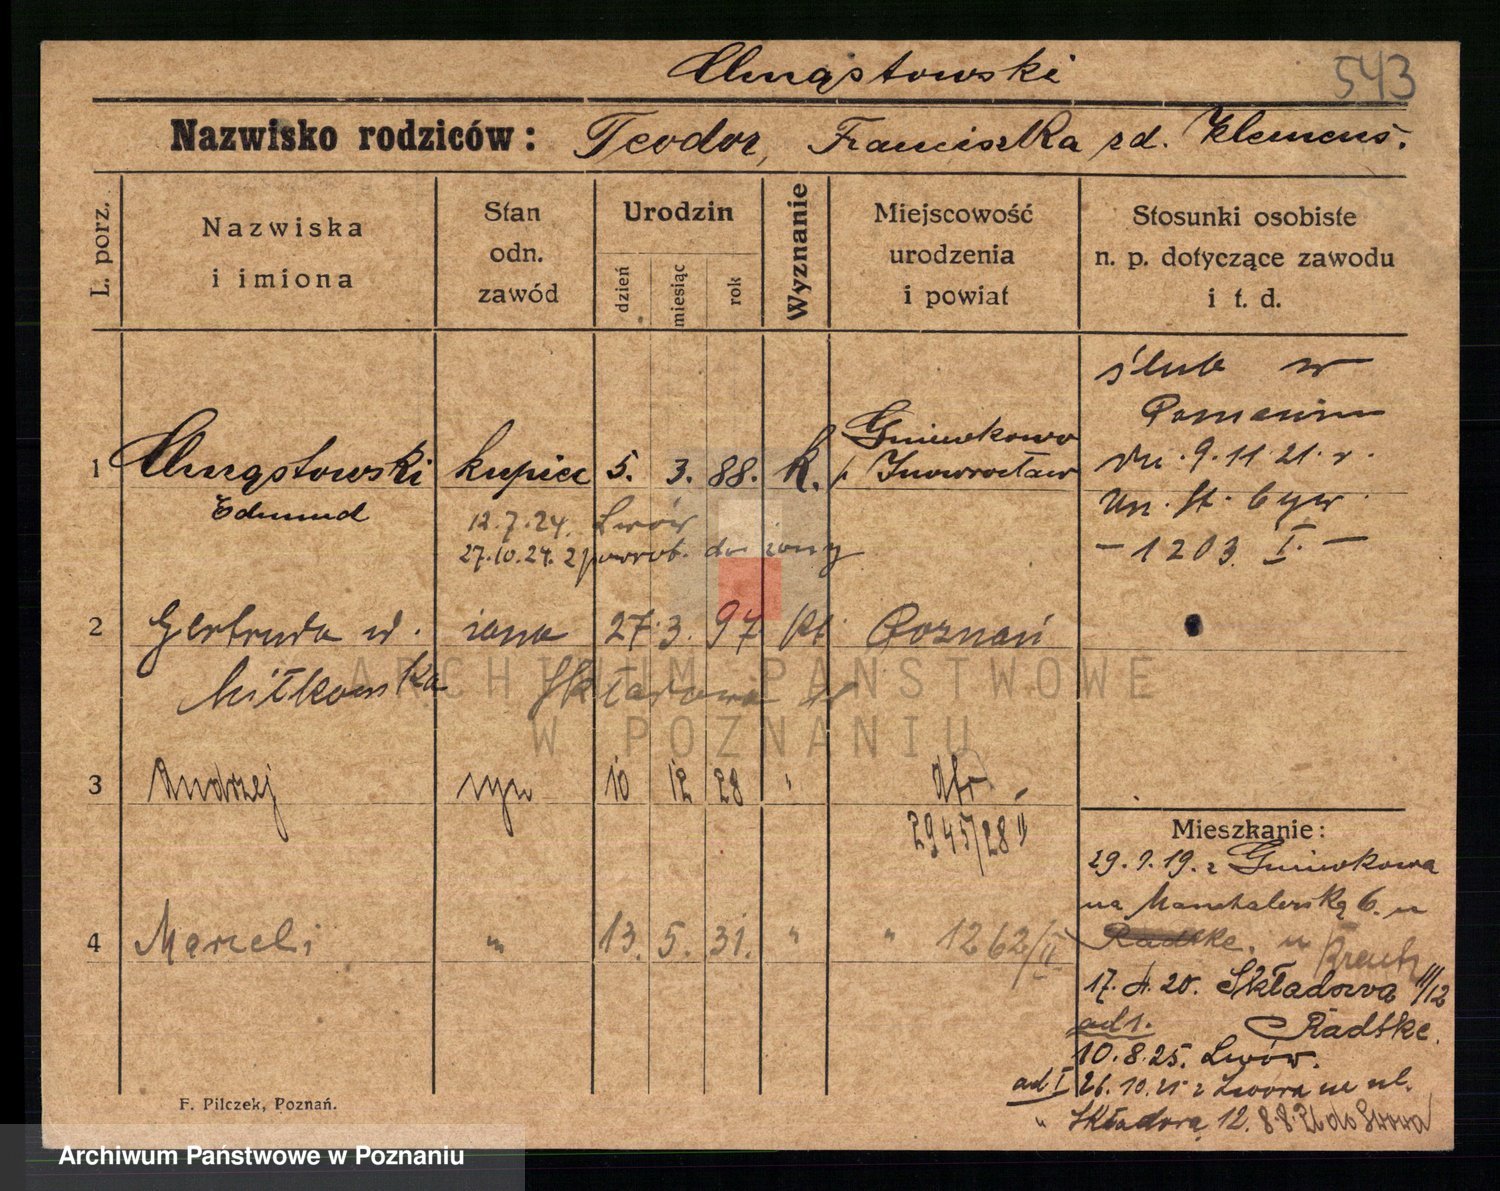 Chrząstowski
543
Nazwisko rodziców: Teodor, Franciszka zd. Klemens.
L. porz.
Nazwiska i imiona
Stan odn. zawód
Urodzin
dzień
miesiąc
rok
Wyznanie
Miejscowość urodzenia i powiat
Stosunki osobiste n. p. dotyczące zawodu i t. d.
ślub w
Poznaniu
dn. 9.11.21. r.
Un. St. Cyw.
- 1203. I. -
Gniewkowo
1 Chrząstowski kupiec 5. 3. 88. k. p. Inowrocław
Edmund
12.7.24. Lwów
27.10.24. z powrot. do żony
2 Gertruda ur. żona 27. 3. 97. kt. Poznań
Miłkowska Składowa
3 Andrzej syn 10 12 28 "
2945/28 II
4 Marceli " 13. 5. 31. " " 1262/II
Mieszkanie:
29.9.19. z Gniewkowa
na 6. u
Radtke. u
17. 20. Składowa III/12
ad 1. Radtke.
10.8.25. Lwów.
ad I 26.10.25 z Lwowa na ul.
" Składową 12. 8.8.26 do Lwowa
F. Pilczek, Poznań.
ARCHIWUM PAŃSTWOWE
W POZNANIU
Archiwum Państwowe w Poznaniu